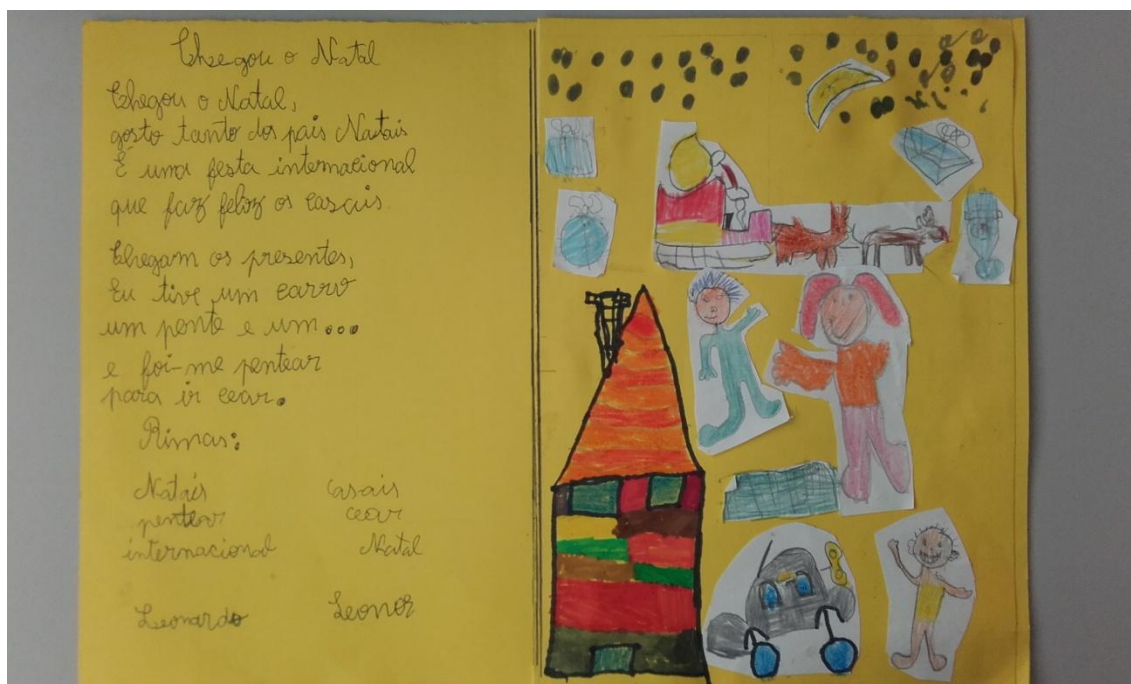 Chegou o Natal
Chegou o Natal,
gosto tanto dos pais Natais
É uma festa internacional
que faz feliz os casais.
Chegam os presentes,
Eu tive um carro
um pente e um...
e foi-me pentear
para ir cear.
Rimas:
Natais casais
pentear cear
internacional Natal
Leonardo Leonor